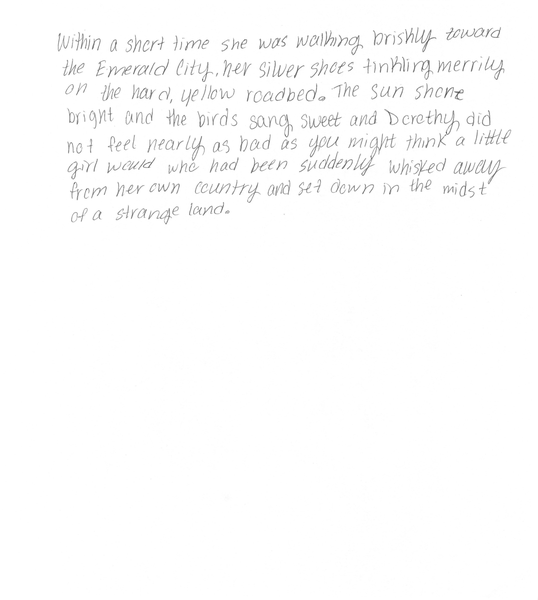 Within a short time she was walking briskly toward
the Emerald City, her silver shoes tinkling merrily
on the hard, yellow roadbed. The sun shone
bright and the birds sang sweet and Dorothy did
not feel nearly as bad as you might think a little
girl would who had been suddenly whisked away
from her own country and set down in the midst
of a strange land.